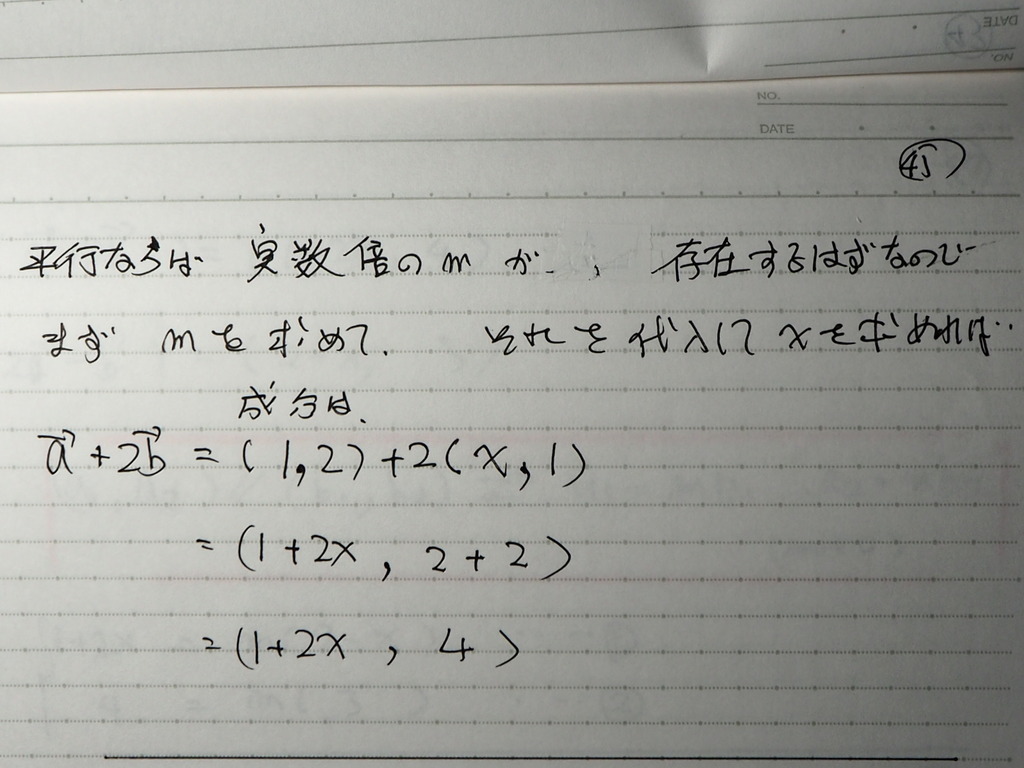 NO.
DATE
NO.
DATE
45
平行ならば 実数倍のmが、存在するはずなので
まず mを求めて、それを代入してxを求めれば…
成分は、
a⃗ + 2b⃗ = (1, 2) + 2(x, 1)
= (1 + 2x, 2 + 2)
= (1 + 2x, 4)